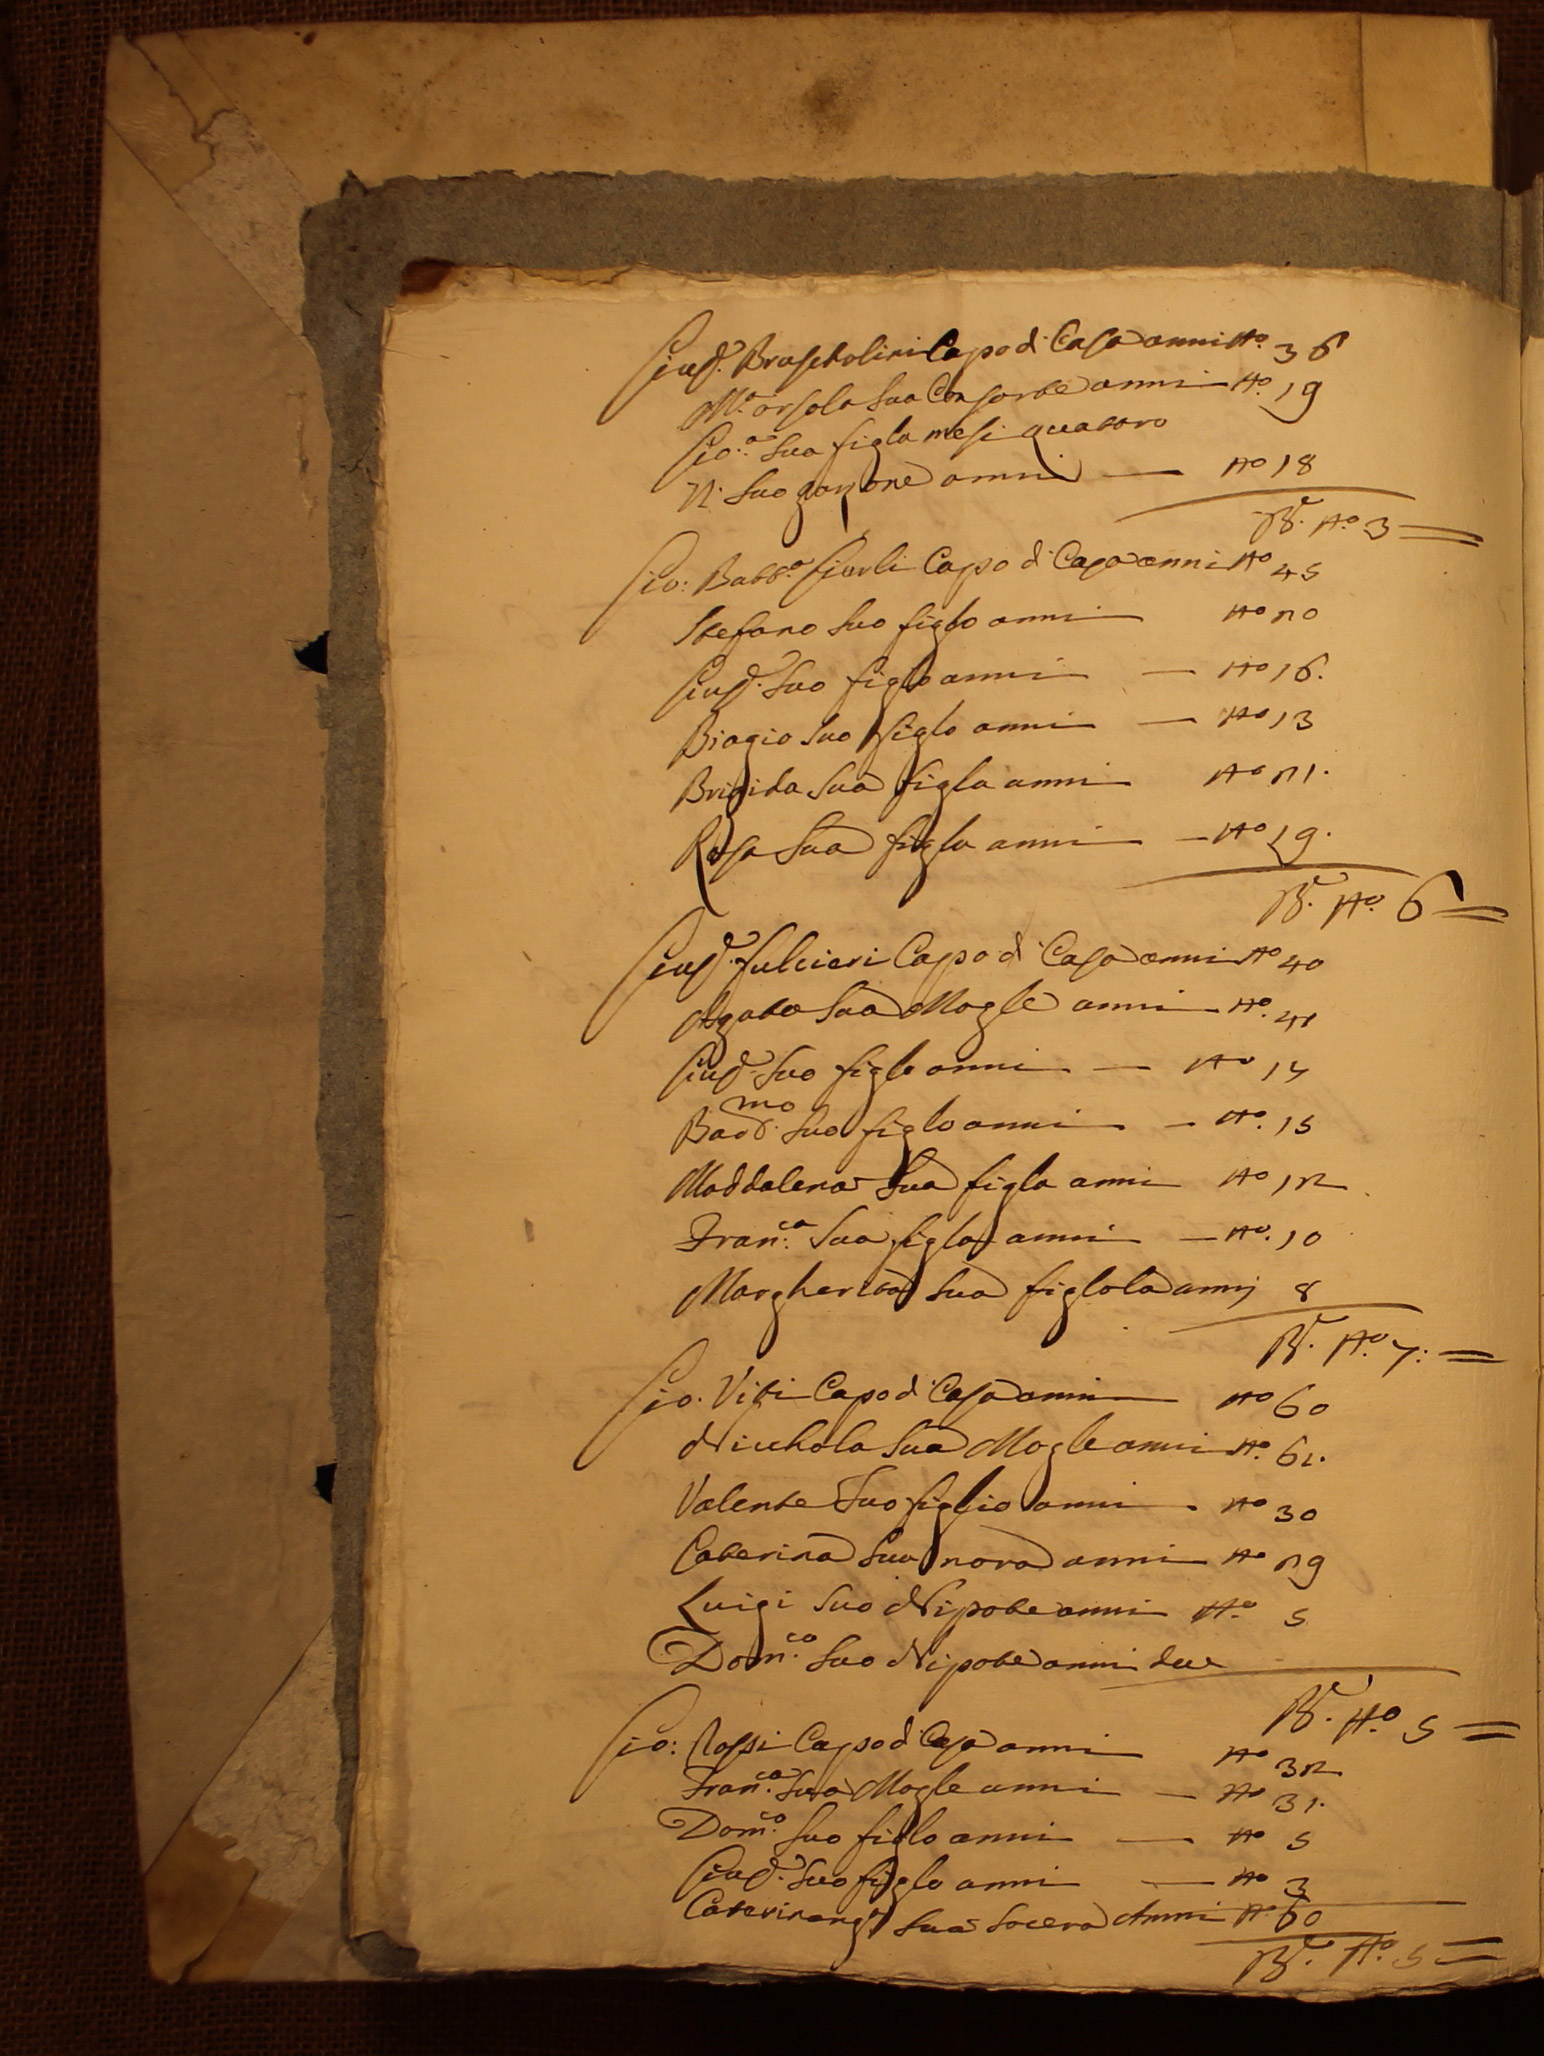 Giuse. Bruscholini Capo di Casa anni No. 36
Ma. orsola sua Consorte anni No. 19
Gio.a sua figla mesi quatoro
N. suo garzone anni No 18
Be. No. 3
Gio: Batta. Giorli Capo di Casa anni No 45
Stefano suo figlo anni No 20
Giuse. suo figlo anni No 16.
Biagio suo figlo anni No 13
Brigida sua figla anni No 21.
Rosa sua figla anni No 19.
Be. No. 6
Giuse. fulcieri Capo di Casa anni No 40
Agata sua Mogle anni No. 41
Giuse. suo figlo anni No 17
Bartmo. suo figlo anni No. 15
Maddalena sua figla anni No 12
Fran.ca sua figla anni No. 10
Margherita sua figlola anni 8
Be. No. 7:
Gio. Viti Capo di Casa anni No 60
Nicchola sua Mogle anni No. 61.
Valente suo figlio anni No 30
Caterina sua nora anni No 29
Luigi suo Nipote anni No. 5
Dom.co suo Nipote anni due
Be. No. 5
Gio: Rossi Capo di Casa anni No 32
Fran.ca sua Mogle anni No 31.
Dom.co suo figlo anni No 5
Giuse. suo figlo anni No 3
Caterina sua socera Anni No. 60
Be. No. 5